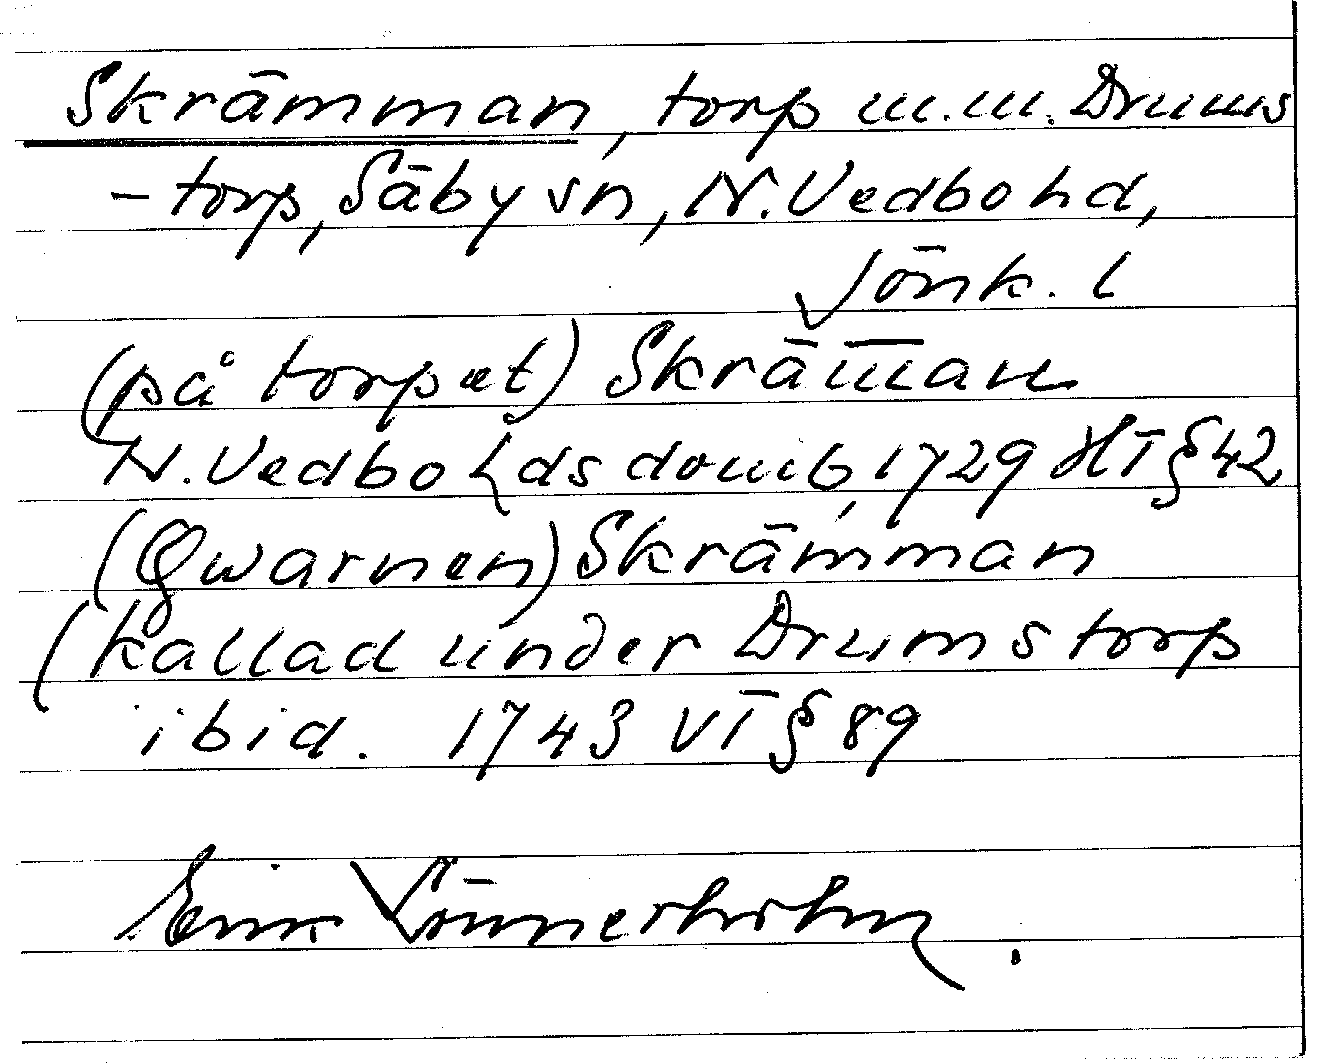 Skrämman, torp m.m. Drums
-torp, Säby sn, N. Vedbo hd,
Jönk. l
(på torpet) Skräm̅an
N. Vedbo hds domb, 1729 HT § 42
(Qwarnen) Skrämman
(kallad under Drumstorp
ibid. 1743 VT § 89
Erik Lönnerholm.